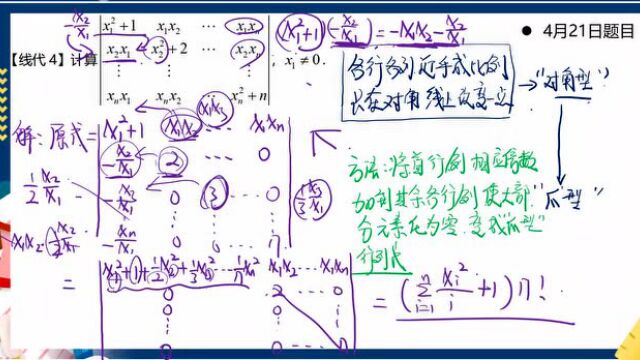 ● 4月21日题目
【线代 4】计算 | x₁²+1 x₁x₂ ⋯ x₁xₙ |
| x₂x₁ x₂²+2 ⋯ x₂xₙ | , xᵢ≠0.
| ⋮ ⋮ ⋮ |
| xₙx₁ xₙx₂ ⋯ xₙ²+n |
-x₂/x₁
(x₁²+1)(-x₂/x₁) = -x₁x₂ - x₂/x₁
各行各列近乎成比例
只在对角线上改变一点
→ "对角型"
解:原式= | x₁²+1 x₁x₂ x₁x₃ ⋯ x₁xₙ |
| -x₂/x₁ 2 ⋯ 0 |
| -x₃/x₁ 0 3 0 |
| ⋮ ⋮ ⋮ ⋮ |
| -xₙ/x₁ 0 0 n |
1/2 x₂/x₁
1/3 x₃/x₁
x₁x₂ · x₂/2x₁
方法:将首行(列)相应倍数
加到其余各行(列)使大部
分元素化为零,变成"爪型"
行列式
"爪型"
= | x₁²+1+1/2x₂²+1/3x₃²⋯1/n xₙ² x₁x₂⋯x₁xₙ |
| 0 2 ⋯ 0 |
| 0 |
| ⋮ |
| 0 n |
= (∑ᵢ₌₁ⁿ xᵢ²/i + 1) n!